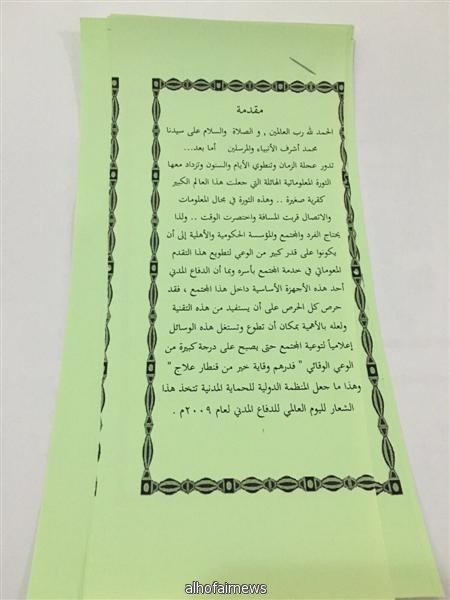 مقدمة
الحمد لله رب العالمين , و الصلاة والسلام على سيدنا
محمد أشرف الأنبياء والمرسلين أما بعد...
تدور عجلة الزمان وتنطوي الأيام والسنون وتزداد معها
الثورة المعلوماتية الهائلة التي جعلت هذا العالم الكبير
كقرية صغيرة .. وهذه الثورة في مجال المعلومات
والاتصال قربت المسافة واختصرت الوقت .. ولذا
يحتاج الفرد والمجتمع والمؤسسة الحكومية والأهلية إلى أن
يكونوا على قدر كبير من الوعي لتطويع هذا التقدم
المعوماتي في خدمة المجتمع بأسره وبما أن الدفاع المدني
أحد هذه الأجهزة الأساسية داخل هذا المجتمع ، فقد
حرص كل الحرص على أن يستفيد من هذه التقنية
ولعله بالأهمية بمكان أن تطوع وتستغل هذه الوسائل
إعلامياً لتوعية المجتمع حتى يصبح على درجة كبيرة من
الوعي الوقائي " فدرهم وقاية خير من قنطار علاج "
وهذا ما جعل المنظمة الدولية للحماية المدنية تتخذ هذا
الشعار لليوم العالمي للدفاع المدني لعام ٢٠٠٩م .
alhofairnews